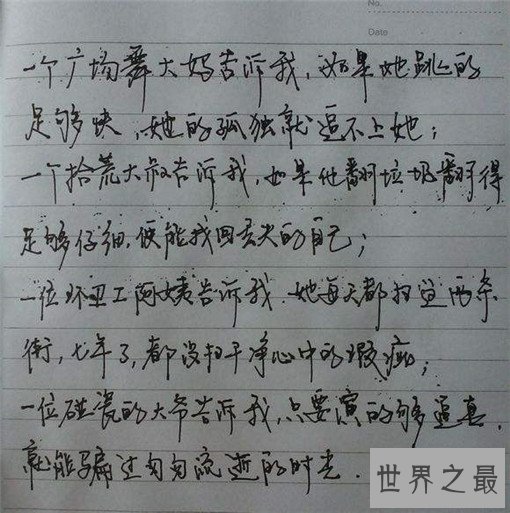 No.
Date
一个广场舞大妈告诉我，如果她跳的
足够快，她的孤独就追不上她；
一个拾荒大叔告诉我，如果他翻垃圾翻得
足够仔细，便能找回丢失的自己；
一位环卫工阿姨告诉我，她每天都扫这两条
街，七年了，都没扫干净心中的瑕疵；
一位碰瓷的大爷告诉我，只要演的够逼真，
就能骗过匆匆流逝的时光．
世界之最